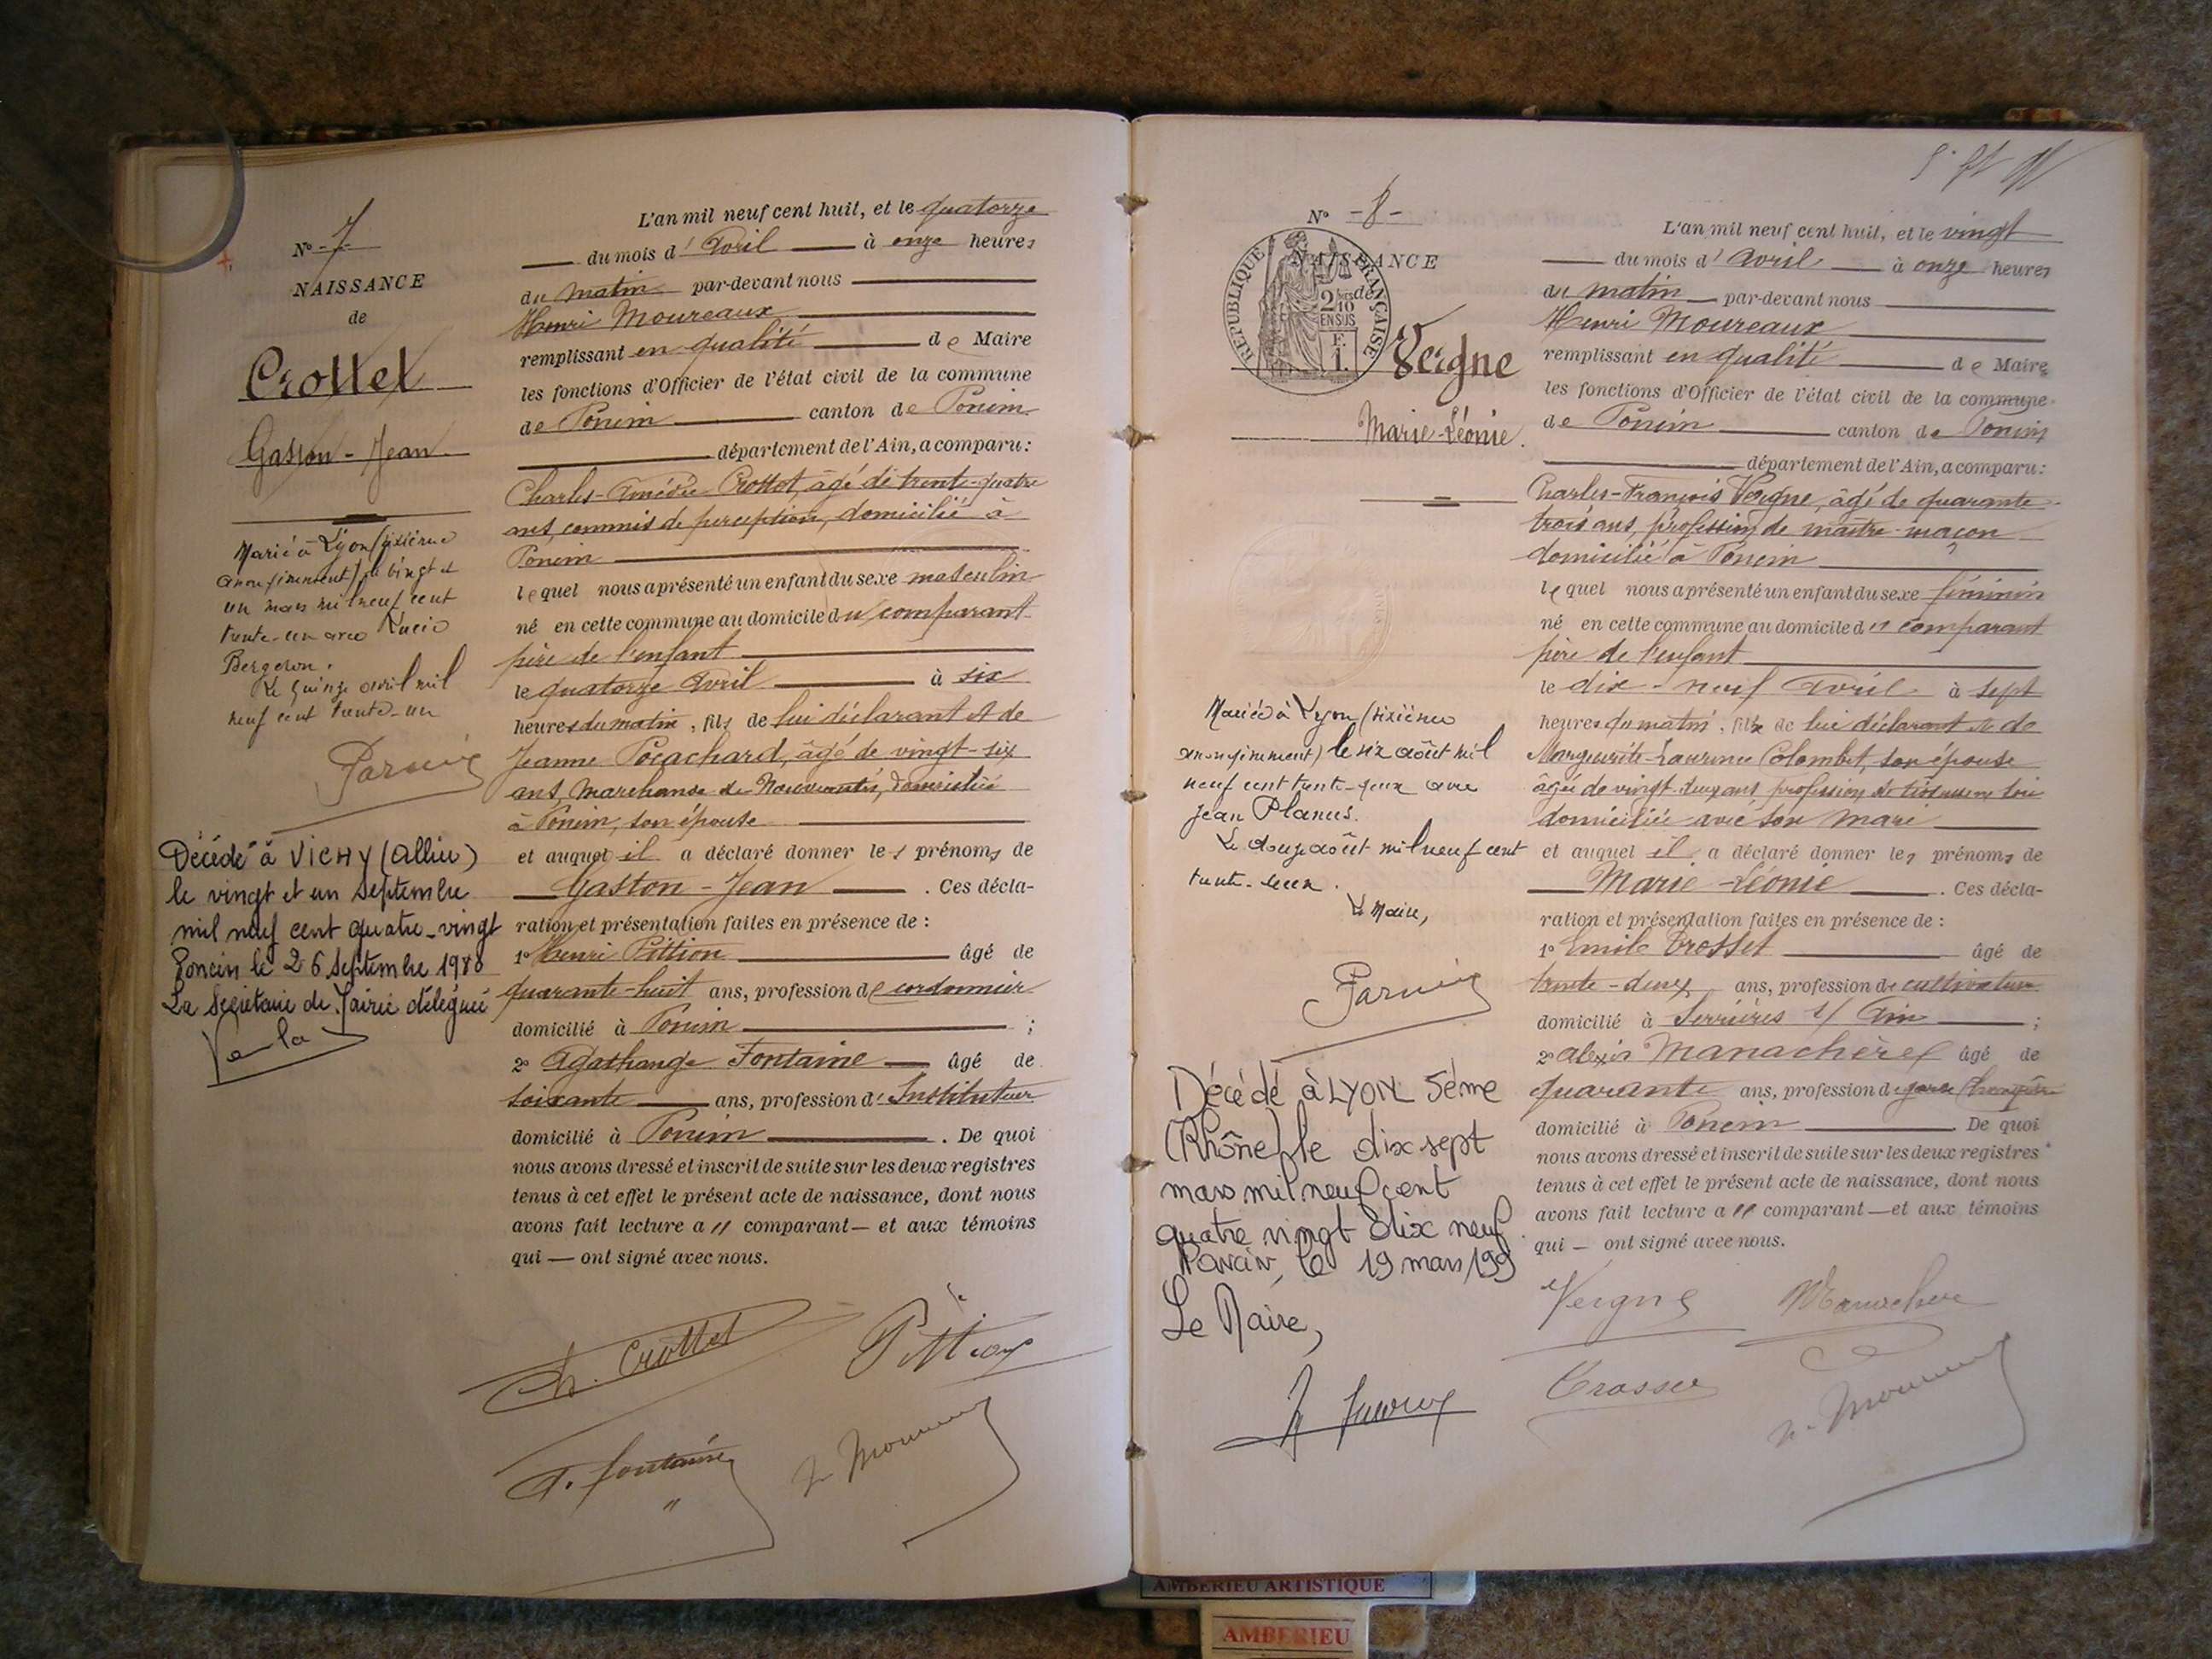 N° - 7 -
NAISSANCE
de
Crottet
Gaston - Jean
Marié à Lyon (sixième
arrondissement) le vingt et
un mars mil neuf cent
trente-un avec Lucie
Bergeron.
Le quinze avril mil
neuf cent trente-un
Décédé à VICHY (Allier)
le vingt et un septembre
mil neuf cent quatre-vingt
Poncin le 26 septembre 1980
La Secrétaire de Mairie déléguée
L'an mil neuf cent huit, et le quatorze
du mois d' Avril à onze heures
du matin par-devant nous
Henri Moureaux
remplissant en qualité de Maire
les fonctions d'Officier de l'état civil de la commune
de Poncin canton de Poncin
département de l'Ain, a comparu :
Charles-Amédée Crottet, âgé de trente-quatre
ans, commis de perception, domicilié à
Poncin
lequel nous a présenté un enfant du sexe masculin
né en cette commune au domicile du comparant
père de l'enfant
le quatorze Avril à six
heures du matin, fils de lui déclarant et de
Jeanne Pocachard, âgé de vingt-six
ans, marchande de Nouveautés, domiciliée
à Poncin, son épouse
et auquel il a déclaré donner les prénoms de
Gaston - Jean. Ces décla-
ration et présentation faites en présence de :
1° Henri Pittion âgé de
quarante-huit ans, profession de cordonnier
domicilié à Poncin ;
2° Agathange Fontaine âgé de
soixante ans, profession d' Instituteur
domicilié à Poncin. De quoi
nous avons dressé et inscrit de suite sur les deux registres
tenus à cet effet le présent acte de naissance, dont nous
avons fait lecture a u comparant — et aux témoins
qui — ont signé avec nous.
Ch. Crottet Pittion
A. Fontaine H. Moureaux
N° - 8 -
NAISSANCE
de
RÉPUBLIQUE FRANÇAISE
2/10
EN SUS
Vergne
Marie-Léonie.
Mariée à Lyon (sixième
arrondissement) le six août mil
neuf cent trente-deux avec
Jean Planus.
Le douze août mil neuf cent
trente-deux.
Le Maire,
Décédé à LYON 5ème
(Rhône) le dix sept
mars mil neuf cent
quatre vingt dix neuf
Poncin, le 19 mars 199
Le Maire,
L'an mil neuf cent huit, et le vingt
du mois d' Avril à onze heures
du matin par-devant nous
Henri Moureaux
remplissant en qualité de Maire
les fonctions d'Officier de l'état civil de la commune
de Poncin canton de Poncin
département de l'Ain, a comparu :
Charles-François Vergne, âgé de quarante-
trois ans, profession de maître-maçon
domicilié à Poncin
lequel nous a présenté un enfant du sexe féminin
né en cette commune au domicile du comparant
père de l'enfant
le dix-neuf Avril à sept
heures du matin, fille de lui déclarant et de
Marguerite-Laurence Colombet, son épouse
âgée de vingt-deux ans profession de tisseuse soie
domiciliée avec son mari
et auquel il a déclaré donner les prénoms de
Marie-Léonie. Ces décla-
ration et présentation faites en présence de :
1° Emile Trosset âgé de
trente-deux ans, profession de cultivateur
domicilié à Serrières s/ Ain ;
2° Alexis Manachère âgé de
quarante ans, profession de garde champêtre
domicilié à Poncin. De quoi
nous avons dressé et inscrit de suite sur les deux registres
tenus à cet effet le présent acte de naissance, dont nous
avons fait lecture a u comparant — et aux témoins
qui — ont signé avec nous.
Vergne Manachère
H. Moureaux
AMBERIEU ARTISTIQUE
AMBERIEU